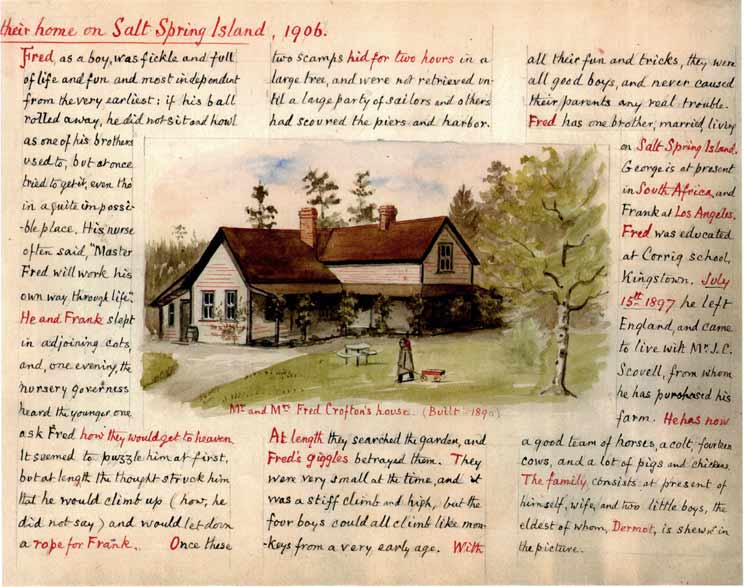 their home on Salt Spring Island, 1906.
Fred, as a boy, was fickle and full
of life and fun and most independent
from the very earliest: if his ball
rolled away, he did not sit and howl
as one of his brothers
used to, but at once
tried to get it, even tho'
in a quite impossi-
-ble place. His nurse
often said, "Master
Fred will work his
own way through life".
He and Frank slept
in adjoining cots,
and, one evening, the
nursery governess
heard the younger one
ask Fred how they would get to heaven.
It seemed to puzzle him at first,
but at length the thought struck him
that he would climb up (how, he
did not say) and would let down
a rope for Frank. Once these
two scamps hid for two hours in a
large tree, and were not retrieved un-
til a large party of sailors and others
had scoured the piers and harbor.
Mr. and Mrs. Fred Crofton's house. (Built 1890)
At length they searched the garden, and
Fred's giggles betrayed them. They
were very small at the time, and it
was a stiff climb and high, but the
four boys could all climb like mon-
-keys from a very early age. With
all their fun and tricks, they were
all good boys, and never caused
their parents any real trouble.
Fred has one brother, married, living
on Salt Spring Island.
George is at present
in South Africa, and
Frank at Los Angeles.
Fred was educated
at Corrig School,
Kingstown. July
15th 1897 he left
England, and came
to live with Mr. J. C.
Scovell, from whom
he has purchased his
farm. He has now
a good team of horses, a colt, fourteen
cows, and a lot of pigs and chickens.
The family consists at present of
himself, wife, and two little boys, the
eldest of whom, Dermot, is shewn in
the picture.